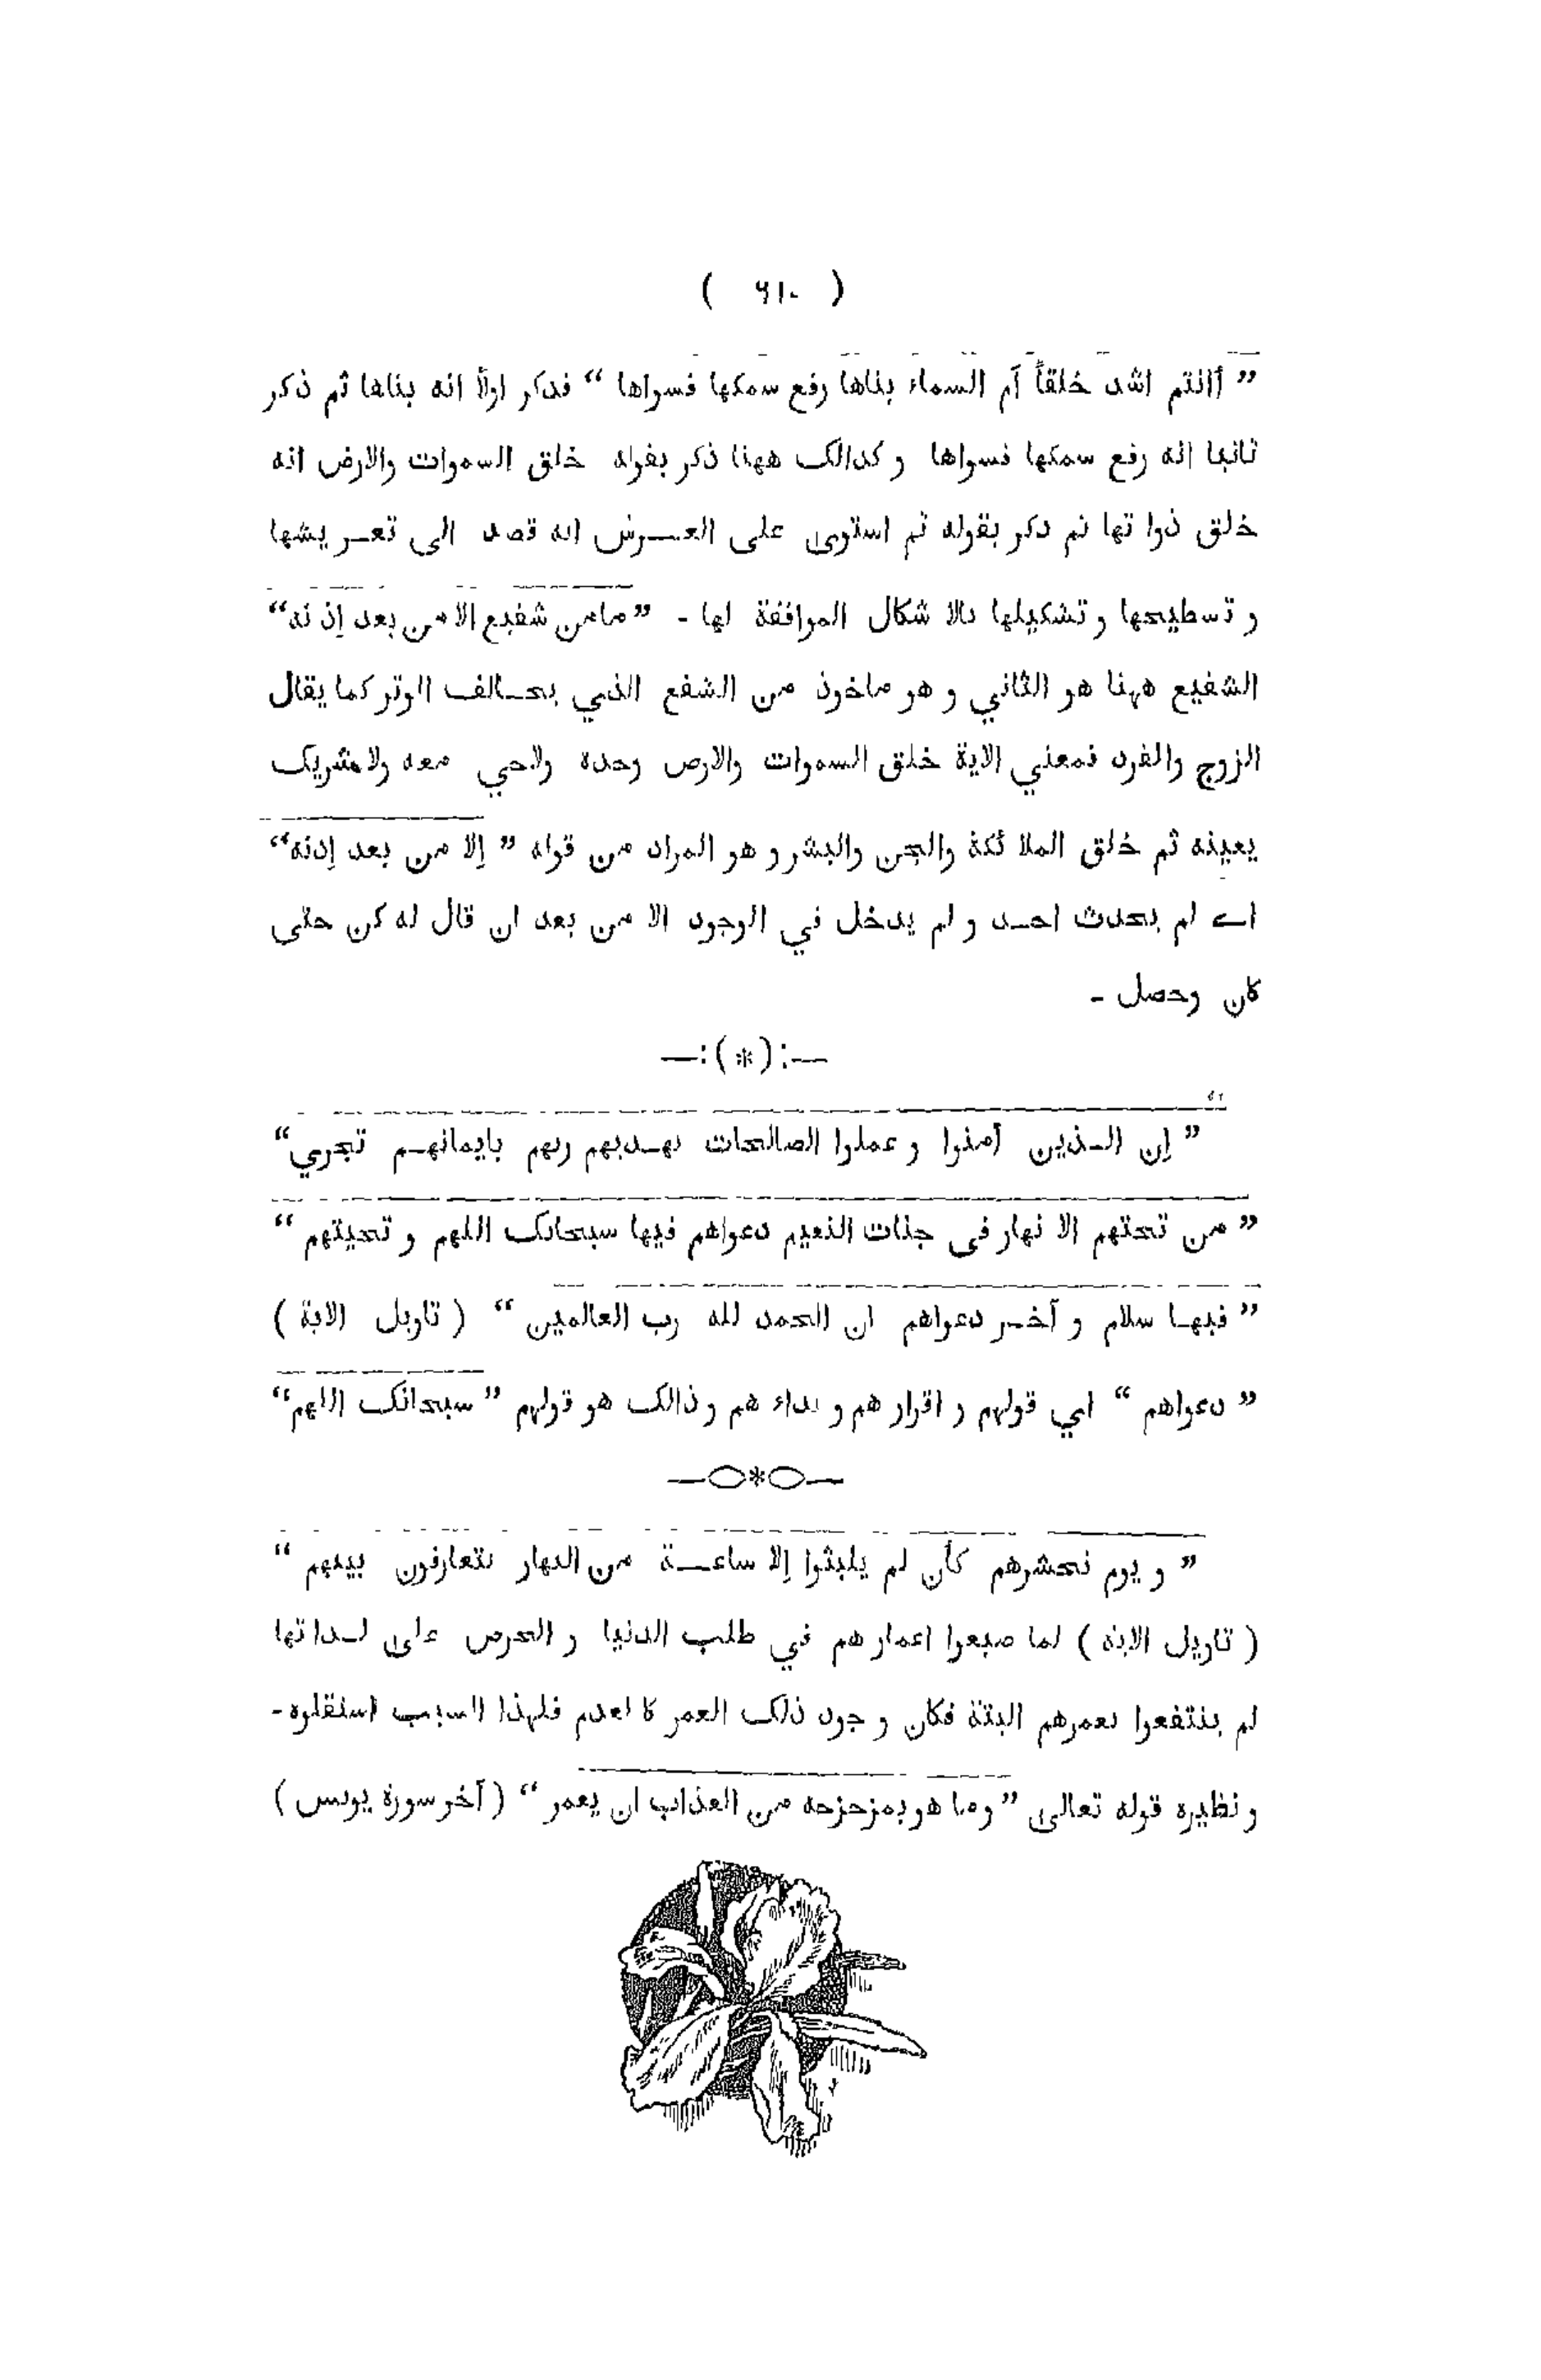 ( ٦١٠ )
” أانتم اشد خلقاً أم السماء بناها رفع سمكها فسواها “ فذكر اولاً انه بناها ثم ذكر
ثانيا انه رفع سمكها فسواها و كذالك ههنا ذكر بقوله خلق السموات والارض انه
خلق ذوا تها ثم ذكر بقوله ثم استوى على العـرش انه قصد الى تعـر يشها
و تسطيحها و تشكيلها بالا شكال الموافقة لها - ”مامن شفيع الا من بعد إذ نه“
الشفيع ههنا هو الثاني و هو ماخوذ من الشفع الذي يخـالف الوتر كما يقال
الزوج والفرد فمعني الاية خلق السموات والارض وحده ولاحي معه ولاشريك
يعينه ثم خلق الملا ئكة والجن والبشر و هو المراد من قوله ” إلا من بعد إذنه“
اے لم يحدث احـد و لم يدخل في الوجود الا من بعد ان قال له كن حتى
كان وحصل -
—:(*):—
” إن الـذين آمنوا و عملوا الصالحات يهـديهم ربهم بايمانهـم تجري“
” من تحتهم الا نهار فى جنات النعيم دعواهم فيها سبحانك اللهم و تحيتهم “
” فيهـا سلام و آخـر دعواهم ان الحمد لله رب العالمين “ ( تاويل الاية )
” دعواهم “ اي قولهم و اقرار هم و نداء هم و ذالك هو قولهم ” سبحانك اللهم“
—○*○—
” و يوم نحشرهم كأن لم يلبثوا إلا ساعـة من النهار يتعارفون بينهم “
( تاويل الاية ) لما ضيعوا اعمار هم في طلب الدنيا و الحرص على لـذاتها
لم ينتفعوا بعمرهم البتة فكان و جود ذلك العمر كا لعدم فلهذا السبب استقلوه -
و نظيره قوله تعالى ” وما هو بمزحزحه من العذاب ان يعمر “ ( آخر سورة يونس )